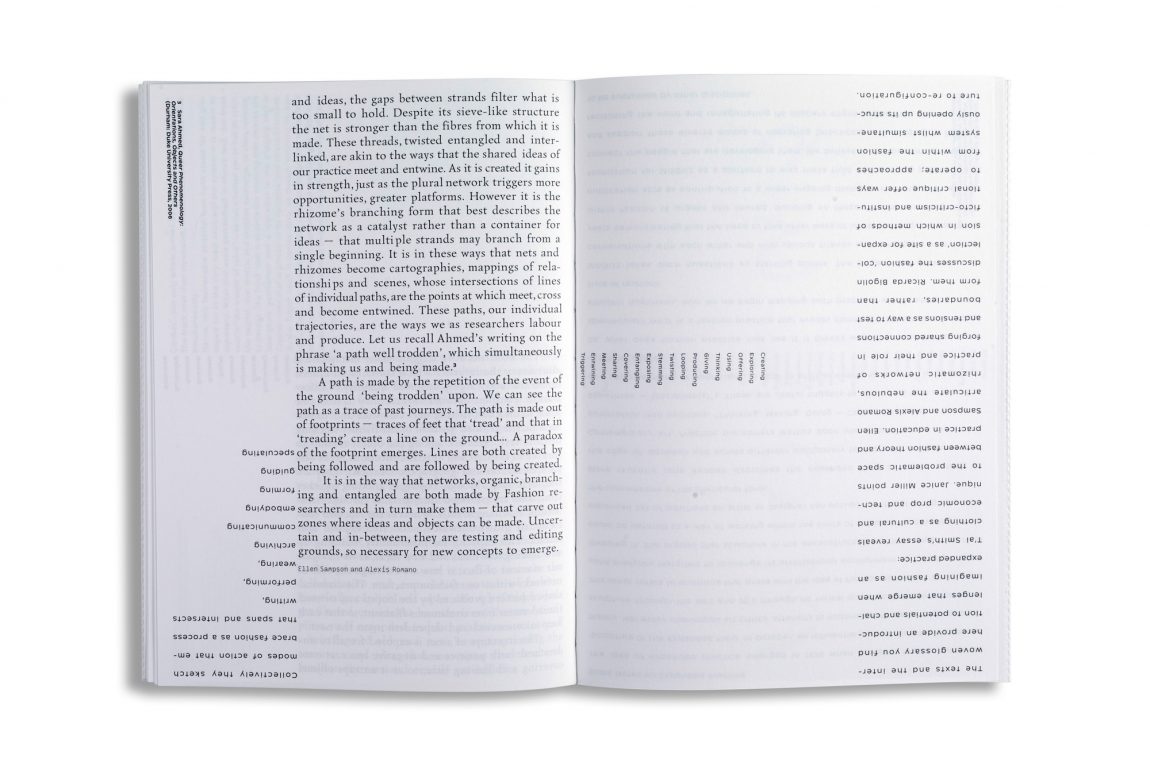 and ideas, the gaps between strands filter what is
too small to hold. Despite its sieve-like structure
the net is stronger than the fibres from which it is
made. These threads, twisted entangled and inter-
linked, are akin to the ways that the shared ideas of
our practice meet and entwine. As it is created it gains
in strength, just as the plural network triggers more
opportunities, greater platforms. However it is the
rhizome's branching form that best describes the
network as a catalyst rather than a container for
ideas — that multiple strands may branch from a
single beginning. It is in these ways that nets and
rhizomes become cartographies, mappings of rela-
tionships and scenes, whose intersections of lines
of individual paths, are the points at which meet, cross
and become entwined. These paths, our individual
trajectories, are the ways we as researchers labour
and produce. Let us recall Ahmed's writing on the
phrase 'a path well trodden', which simultaneously
is making us and being made.³
A path is made by the repetition of the event of
the ground 'being trodden' upon. We can see the
path as a trace of past journeys. The path is made out
of footprints — traces of feet that 'tread' and that in
'treading' create a line on the ground... A paradox
of the footprint emerges. Lines are both created by
being followed and are followed by being created.
It is in the way that networks, organic, branch-
ing and entangled are both made by Fashion re-
searchers and in turn make them — that carve out
zones where ideas and objects can be made. Uncer-
tain and in-between, they are testing and editing
grounds, so necessary for new concepts to emerge.
Ellen Sampson and Alexis Romano
3 Sara Ahmed, Queer Phenomenology:
Orientations, Objects and Others
(Durham: Duke University Press, 2006
Creating
Exploring
Offering
Using
Thinking
Giving
Producing
Looping
Twisting
Stemming
Exposing
Entangling
Covering
Sharing
Meeting
Entwining
Triggering
The texts and the inter-
woven glossary you find
here provide an introduc-
tion to potentials and chal-
lenges that emerge when
imagining fashion as an
expanded practice:
T'ai Smith's essay reveals
clothing as a cultural and
economic prop and tech-
nique. Janice Miller points
to the problematic space
between fashion theory and
practice in education. Ellen
Sampson and Alexis Romano
articulate the nebulous,
rhizomatic networks of
practice and their role in
forging shared connections
and tensions as a way to test
boundaries, rather than
form them. Ricarda Bigolin
discusses the fashion 'col-
lection', as a site for expan-
sion in which methods of
ficto-criticism and institu-
tional critique offer ways
to operate; approaches
from within the fashion
system whilst simultane-
ously opening up its struc-
ture to re-configuration.
Collectively they sketch
modes of action that em-
brace fashion as a process
that spans and intersects
writing,
performing,
wearing,
archiving
communicating
embodying
forming
guiding
speculating